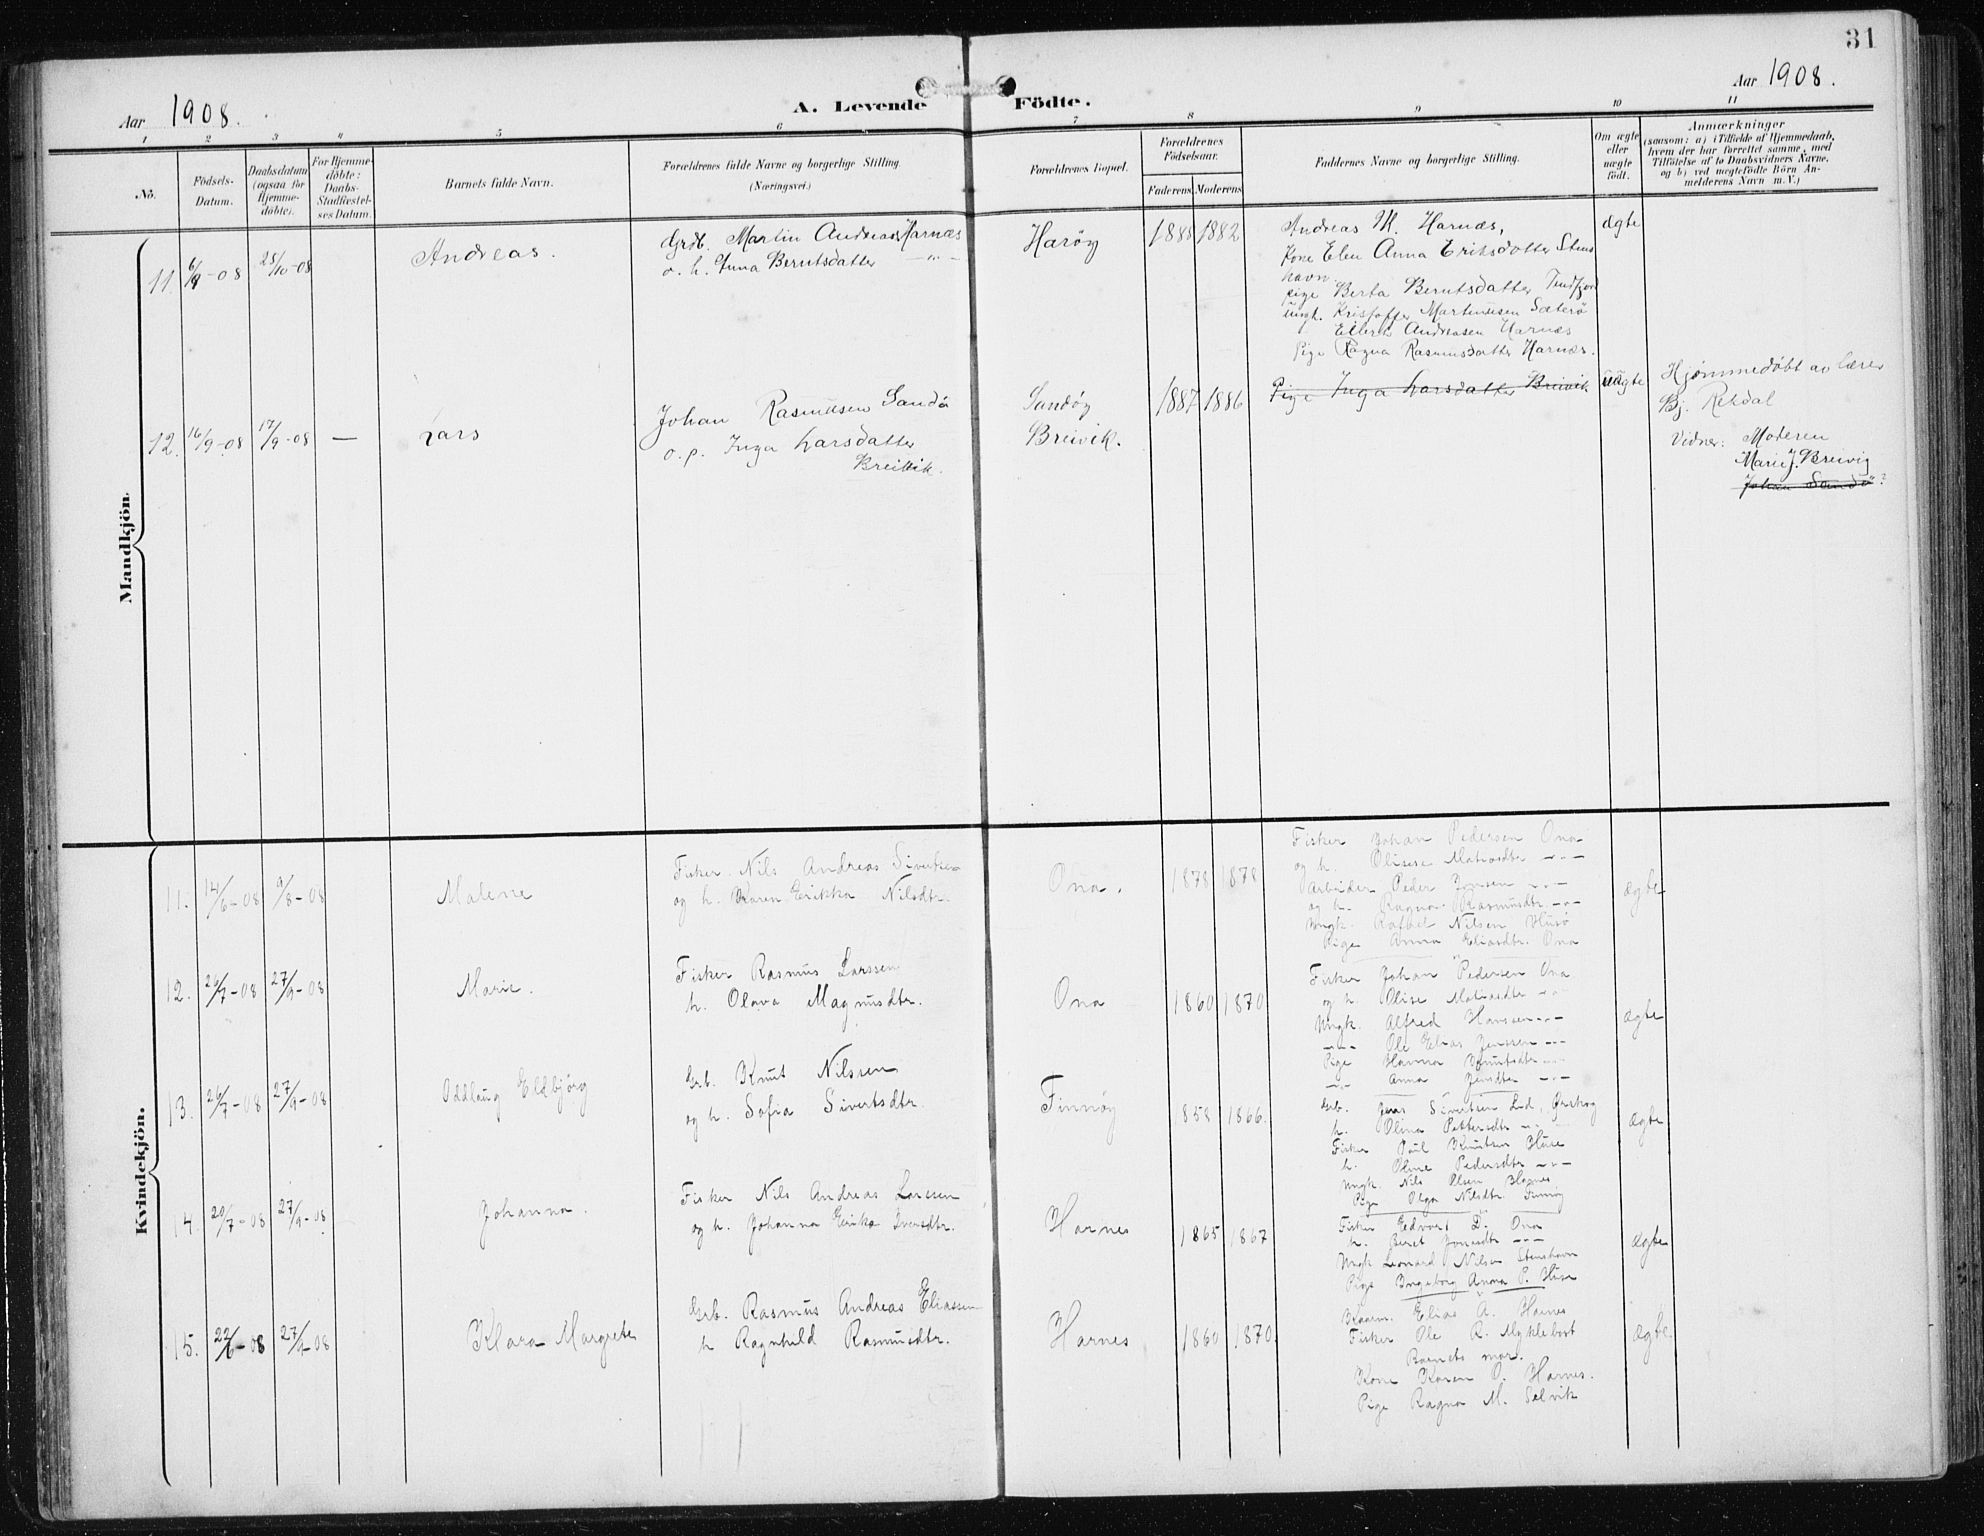 31
Aar 1908.
A. Levende Födte.
Aar 1908.
1 2 3 4 5 6 7 8 9 10 11
No.
Födsels-
Datum.
Daabsdatum
(ogsaa for
Hjemme-
døbte).
For Hjemme-
døbte:
Daabs-
Stadfæstel-
ses Datum.
Barnets fulde Navn.
Forældrenes fulde Navne og borgerlige Stilling.
(Næringsvei.)
Forældrenes Bopæl.
Forældrenes
Födselsaar.
Faderens Moderens
Faddernes Navne og borgerlige Stilling.
Om ægte
eller
uægte
født.
Anmærkninger
(saasom: a) i Tilfælde af Hjemmedaab,
hvem der har forrettet samme, med
Tilföielse af to Daabsvidners Navne,
og b) ved uægtefödte Börn An-
melderens Navn m.V.)
Mandkjön.
11. 6/9-08 25/10-08
Andreas.
Grdb. Martin Andreas Harnæs
o. h. Anna Berntsdatter -"-
Harøy
1888 1882
Andreas M. Harnæs,
Kone Elen Anna Eriksdatter Stens
havn
pige Berta Berntsdatter
ungk. Kristoffer Martinusen Sæterø
Andreasen Harnæs
Pige Ragna Rasmusdatter Harnæs.
ægte
12. 16/9-08 17/9-08 —
Lars
Johan Rasmusen Sandø
o. p. Inga Larsdatter
Breivik.
Sandøy
Breivik.
1887 1886
Pige Inga Larsdatter Breivik
uægte
Hjemmedøbt av lærer
Bj. Rekdal
Vidner: Moderen
Marie J. Breivig
Johan Sandø?
Kvindekjön.
11. 14/6-08 9/8-08
Malene
Fisker Nils Andreas Sivertsen
og h. Karen Erikka Nilsdtr.
Ona.
1878 1878
Fisker Johan Pedersen Ona
og h. Olisese Matiasdtr -"-
Arbeider Peder Jensen -"-
og h. Ragna Rasmusdtr. -"-
Ungk. Rafael Nilsen Husø
Pige Anna Eliasdtr. Ona
ægte
12. 26/7-08 27/9-08
Marie.
Fisker Rasmus Larssen
h. Olava Magnusdtr.
Ona
1860 1870
Fisker Johan Pedersen Ona
og h. Olise Matiasdtr -"-
Ungk. Alfred Hanssen -"-
-"- Ole Elias Jenssen -"-
Pige Hanna Knutsdtr -"-
-"- Anna Jensdtr -"-
ægte
13. 26/7-08 27/9-08
Oddlaug Eldbjørg
Grb. Knut Nilssen
og h. Sofia Sivertsdtr.
Finnøy
1858 1866.
Grb. Jens Sivertsen Lid, Ørskog
h. Olina Pettersdtr -"-
Fisker Paul Knutsen Huse
h. Oline Pedersdtr -"-
Ungk. Nils Olsen Harnes
Pige Olga Nilsdtr. Finnøy
ægte
14. 20/7-08 27/9-08
Johanna.
Fisker Nils Andreas Larssen
og h. Johanna Erika Iversdtr.
Harnes
1865 1867
Fisker Edvart D. Ona
h. Beret Jonasdtr -"-
Ungk Leonard Nilsen Stenshavn
Pige Ingeborg Anna P. Huse
ægte
15. 22/6-08 27/9-08
Klara Margrete
Grb. Rasmus Andreas Eliassen
h Ragnhild Rasmusdtr.
Harnes
1860 1870.
Kaarm. Elias A. Harnes
Fisker Ole R. Myklebost
Barnets mor.
Kone Karen O. Harnes.
Pige Ragna M. Selvik
ægte